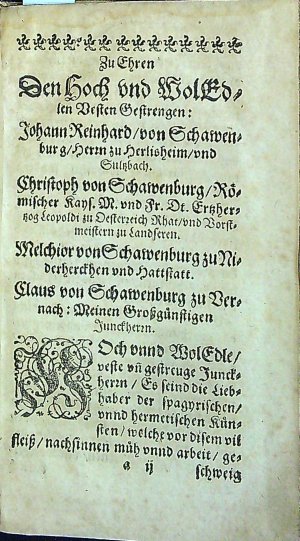 Zu Ehren
Den Hoch vnd WolEd-
len Vesten Gestrengen:
Johann Reinhard/von Schawen-
burg/Herrn zu Herlisheim/vnd
Sultzbach.
Christoph von Schawenburg/Rö-
mischer Kays. M. vnd Fr. Dt. Ertzher-
tzog Leopoldi zu Oesterreich Rhat/vnd Vorst-
meistern zu Landseren.
Melchior von Schawenburg zu Ni-
derherckhen vnd Hattstatt.
Claus von Schawenburg zu Ver-
nach: Meinen Großgünstigen
Junckherrn.
HOch vnnd WolEdle/
veste vñ gestrenge Junck-
herrn/Es seind die Lieb-
haber der spagyrischen/
vnnd hermetischen Kün-
sten/welche vor disem vil
fleiß/nachsinnen müh vnnd arbeit/ge-
a ij schweig